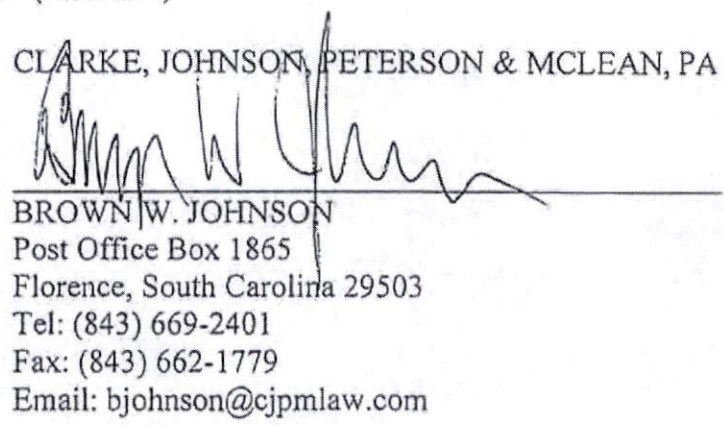 CLARKE, JOHNSON, PETERSON & MCLEAN, PA
BROWN W. JOHNSON
Post Office Box 1865
Florence, South Carolina 29503
Tel: (843) 669-2401
Fax: (843) 662-1779
Email: bjohnson@cjpmlaw.com